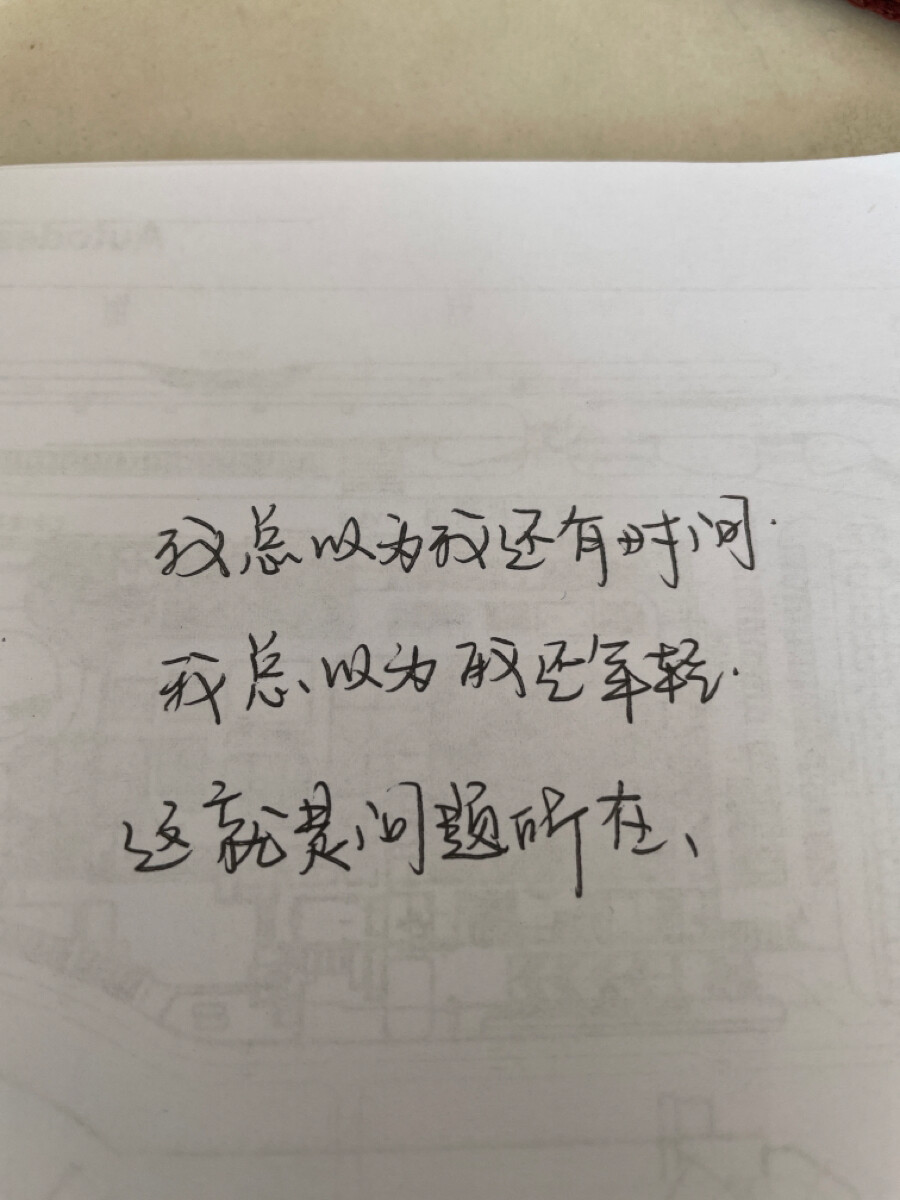 我总以为我还有时间.
我总以为我还年轻.
这就是问题所在、